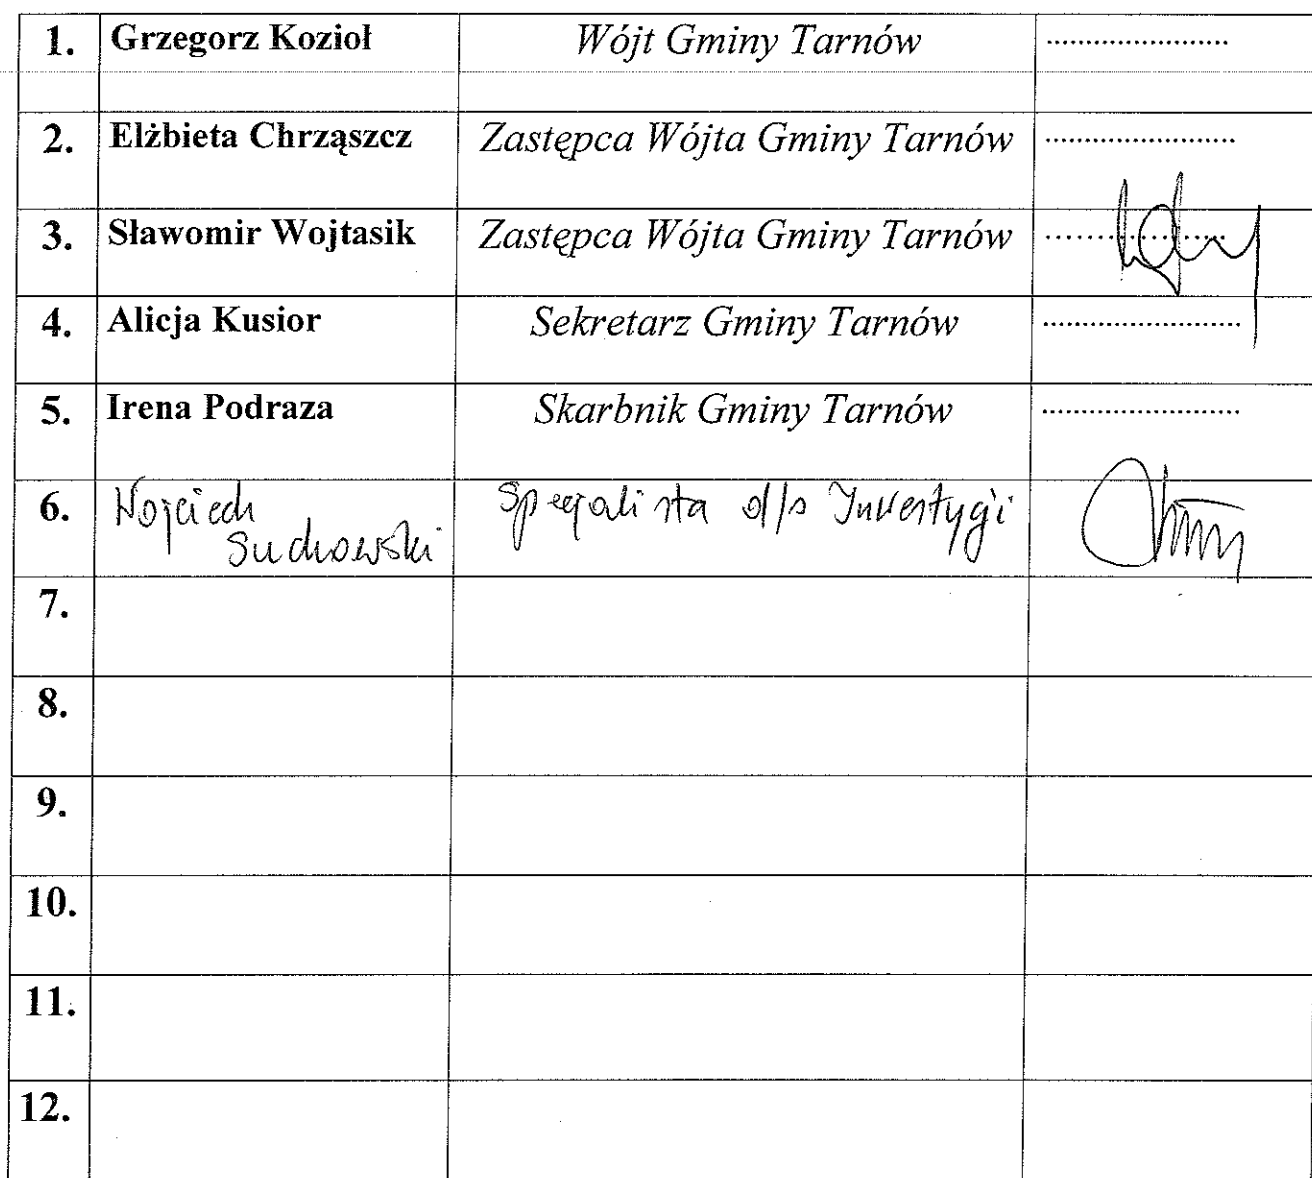 1. Grzegorz Kozioł Wójt Gminy Tarnów ......................
2. Elżbieta Chrząszcz Zastępca Wójta Gminy Tarnów ......................
3. Sławomir Wojtasik Zastępca Wójta Gminy Tarnów ......................
4. Alicja Kusior Sekretarz Gminy Tarnów ......................
5. Irena Podraza Skarbnik Gminy Tarnów ......................
6. Wojciech Specjalista d/s Inwestycji
Suchowski
7.
8.
9.
10.
11.
12.